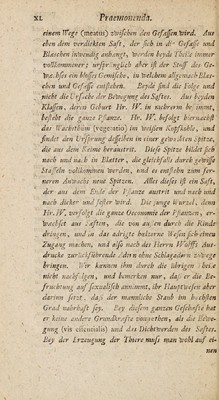 XL Praemonenda.
einem Wege (meatu) zwischen den Gefässen wird. Aus
eben dem verdickten Saft, der sich in die Gefäss- und
Bläschen inwendig anhängt, werden beyde Theile immer
vollkommener; ursprünglich aber ist der Stoff des Ge-
wächses ein blosses Gemische, in welchem allgemach Bläs-
chen und Gefässe entstehen. Beyde sind die Folge und
nicht die Ursache der Bewegung des Saftes. Aus beyden
Klassen, deren Geburt Hr. W. in mehrerm bestimmt,
besteht die ganze Pflanze. Hr. W. befolgt hiernächst
das Wachsthum (vegetatio) im weissen Kopfkohle, und
findet den Ursprung desselben in einer gewissen Spitze,
die aus dem Keime heraustritt. Diese Spitze bildet sich
nach und nach in Blätter, die gleichfalls durch gewisse
Staffeln vollkommen werden, und es entstehen zum fer-
neren Anwachs neue Spitzen. Alles dieses ist ein Saft,
der aus dem Ende der Pflanze austritt und nach und
nach dicker und fester wird. Die junge Wurzel, denn
Hr. W. verfolgt die ganze Oeconomie der Pflanzen, er-
wächset aus Säften, die von aussen durch die Rinde
dringen, und in das adrigte hölzerne Wesen sich einen
Zugang machen, und also nach des Herren Wolffs Aus-
drucke zurückführende Adern ohne Schlagadern zuwege
bringen. Wir können ihm durch die übrigen Theile
nicht nachfolgen, und bemerken nur, dass er die Be-
fruchtung auf sexualisch annimmt, ihr Hauptwesen aber
darinn setzt, dass der männliche Staub im höchsten
Grad nahrhaft sey. Bey diesem ganzen Geschäfte hat
er keine andere Grundkräfte vonnöthen, als die Bewe-
gung (vis essentialis) und das Dichtwerden des Saftes.
Bey der Erzeugung der Thiere muss man wohl auf ei-
nen